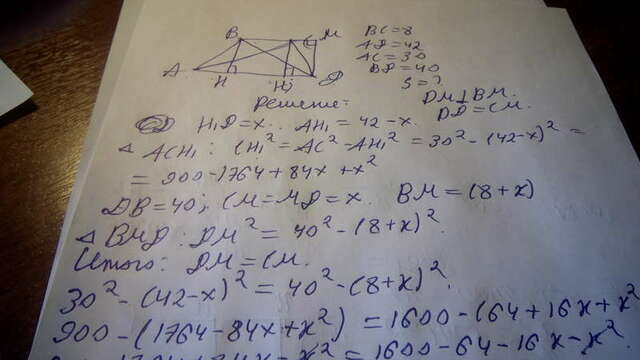 B C M
A H H₁ D
BC=8
AD=42
AC=30
BD=40
S=?
Решение:
DM⊥BM.
H₁D=x. AH₁=42-x.
△ACH₁: CH₁²=AC²-AH₁²=30²-(42-x)²=
=900-1764+84x+x²
DB=40; CM=MD=x. BM=(8+x)
△BMD: DM²=40²-(8+x)².
Итого: DM=CM.
30²-(42-x)²=40²-(8+x)².
900-(1764-84x+x²)=1600-(64+16x+x²
=1600-64-16x-x².